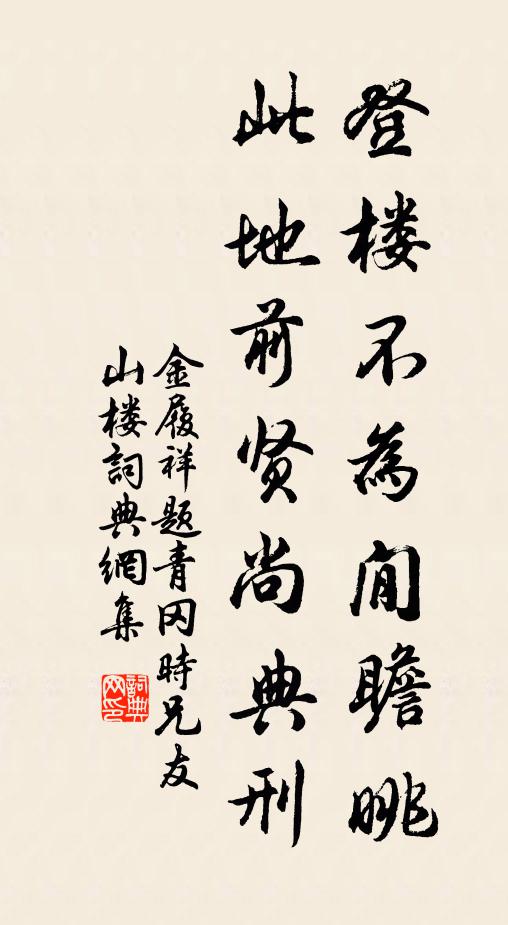 登楼不為閒瞻眺
此地前贤尚典刑
金履祥题青冈時兄友
山楼詞典網集
詞典網印